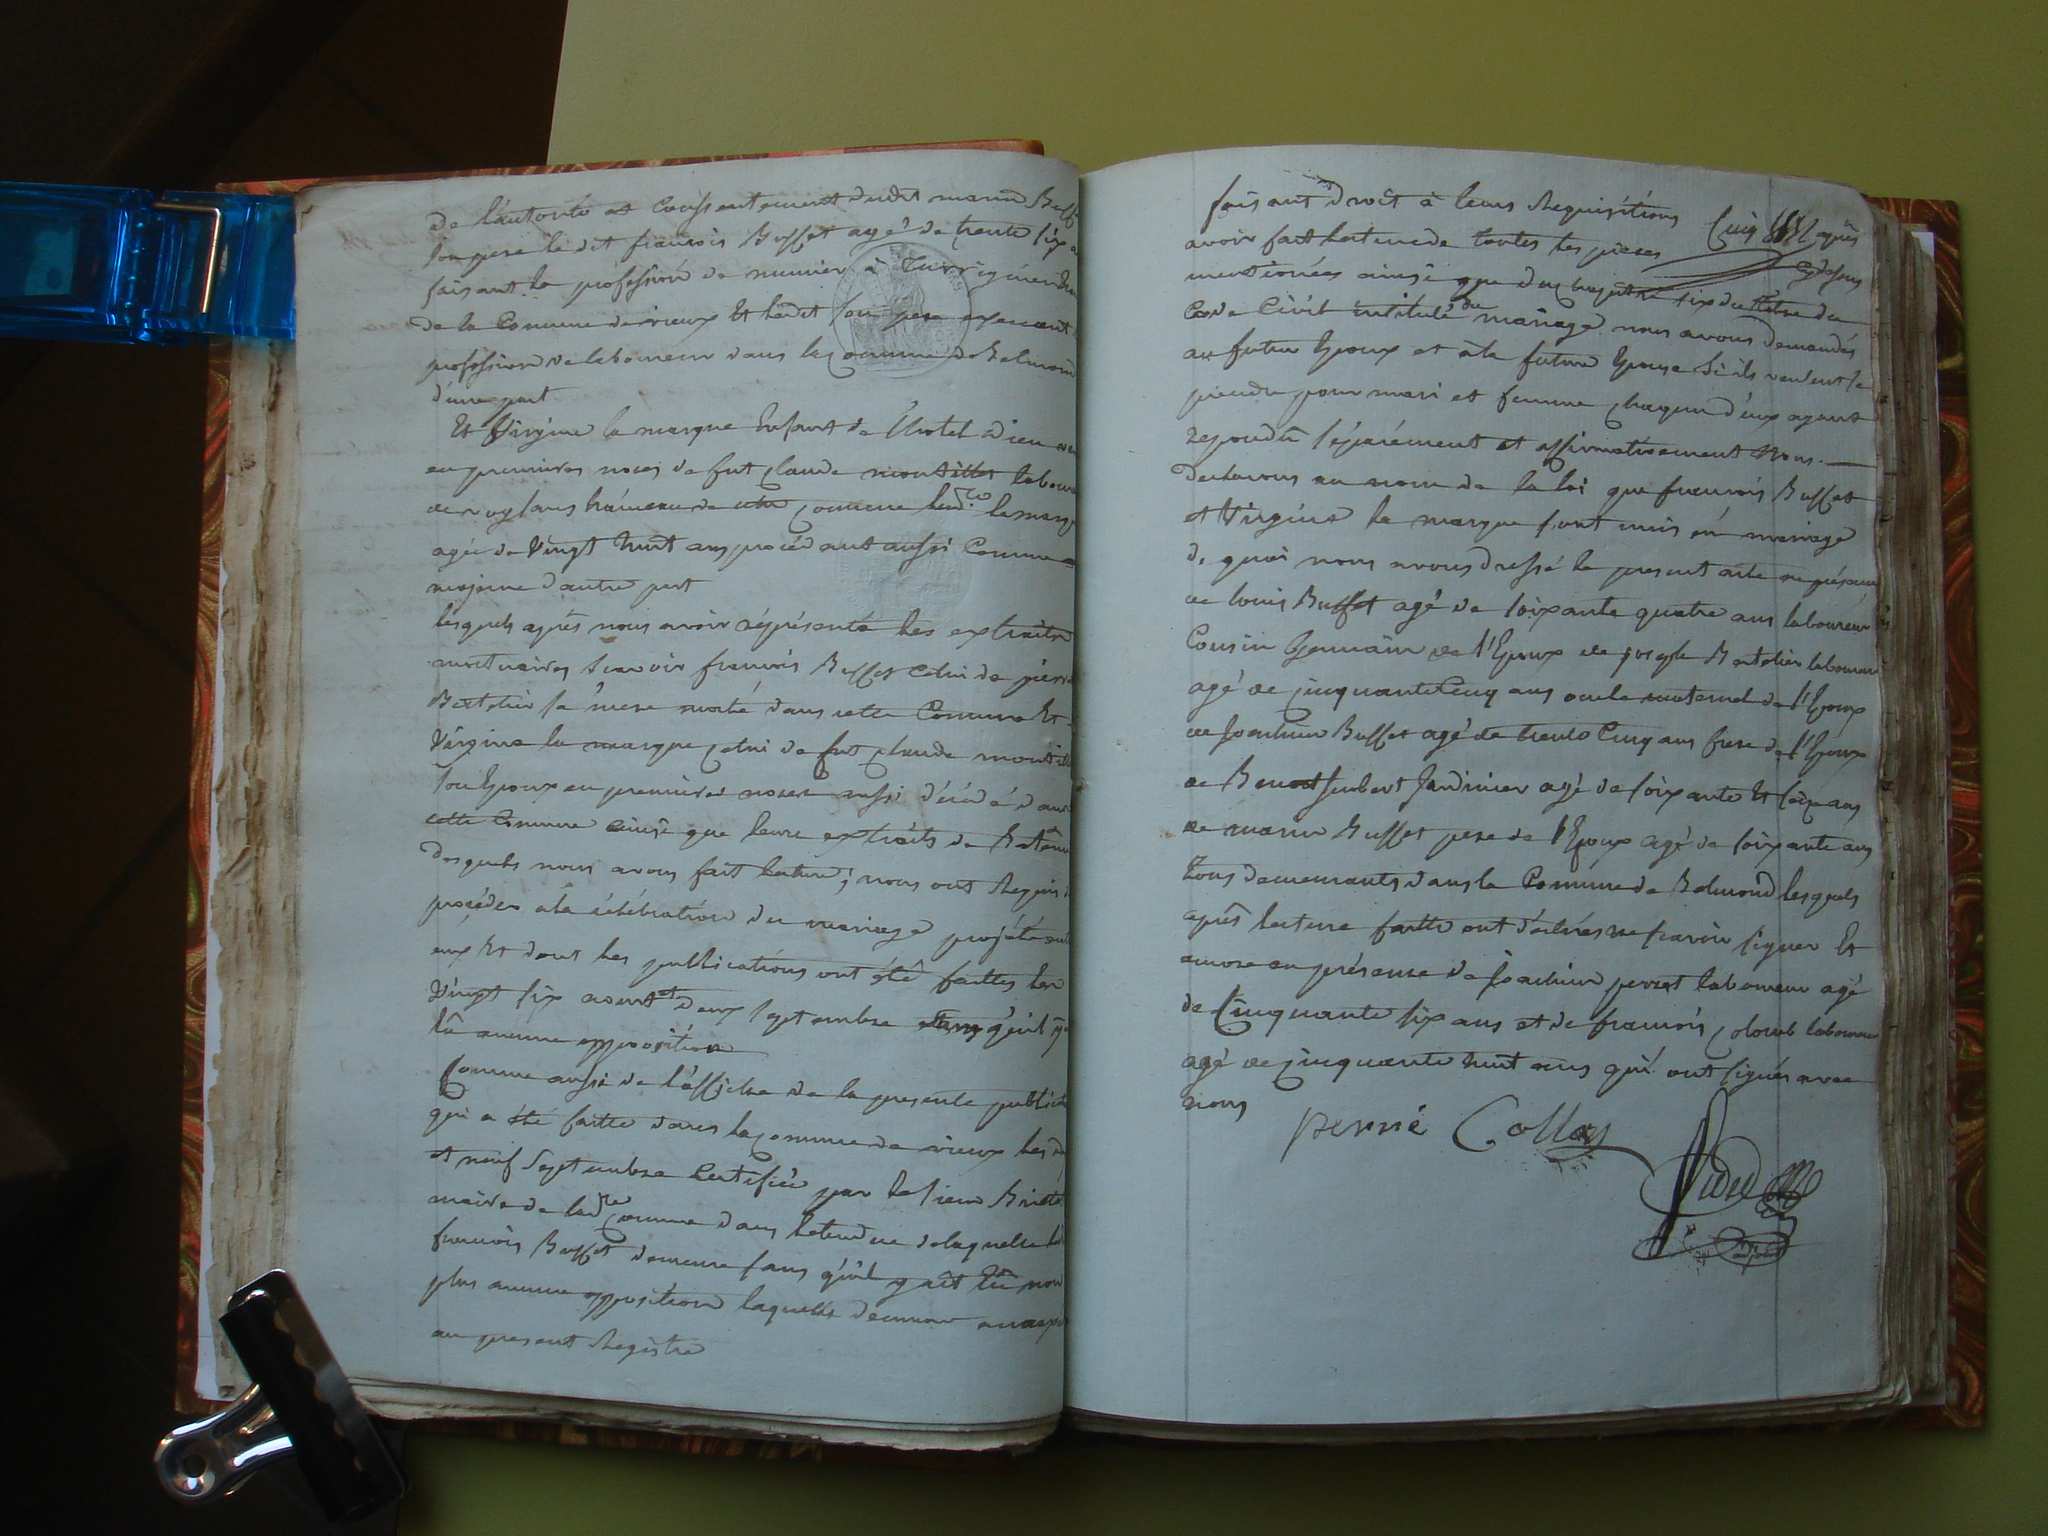 de l'autorité et Consentement dudit marin Buff
son pere le dit francois Buffet agé de trente six a
faisant la profession de munier à
de la Comune de vieux Et ledit son pere exercent
profession de laboureur dans la Comune de Belmond
d'une part
Et Virgine la marque Enfant de l'hotel Dieu
en premieres noces de fut claude laboure
hameau de commune lad.te la marq
agée de Vingt huit ans procédant aussi Comme
majeure d'autre part
lesquels aprés nous avoir répresenté les extraits
mortuaires scavoir francois Buffet Celui de pierr
Bertelier sa mere morte dans cette Comune Et
Virgine la marque celui de fut claude
son Epoux en premieres noces aussi décédé dans
cette Comune ainsi que leurs extraits de Batême
desquels nous avons fait lecture; nous ont Requis
procéder à la célébration du mariage projété ent
eux Et dont les publications ont été faittes les
Vingt six aoust et deux septembre qu'il y
Eû aucune opposition
Comme aussi de l'affiche de la presente publicat
qui a été faitte dans la Commune de vieux les
et neuf Septembre Certifiée par le sieur
maire de lad.te Comune dans letendue de laquelle le
francois Buffet demeure sans qu'il y ait Eû non
plus aucune opposition laquelle demeure
au present Registre
faisant droit à leurs Requisitions
avoir fait lecture de toutes les pieces aprés
mentionées ainsi que du chapitre six du titre du cy desus
Code Civil intitulé du mariage nous avons demandés
au futur Epoux et à la future Epouse si ils veulent se
prendre pour mari et femme chaqun d'eux ayant
repondû séparément et affirmativement Nous
Declarons au nom de la loi que francois Buffet
et Virgine la marque sont unis en mariage
de quoi nous avons dressé le present acte en présence
de louis Buffet agé de soixante quatre ans laboureur
Cousin Germain de l'Epoux de joseph Bertelier laboureur
agé de cinquante Cinq ans oncle maternel de l'Epoux
de Joachim Buffet agé de trente Cinq ans frere de l'Epoux
de Benoit Jardinier agé de soixante Et seize ans
de marin Buffet pere de l'Epoux agé de soixante ans
tous demeurants dans la Commune de Belmond lesquels
aprés lecture faitte ont déclarés ne scavoir signer Et
encore en présence de Joachim perret laboureur agé
de Cinquante six ans et de francois laboureur
agé de cinquante huit ans qui ont signés avec
nous
perrié Collay